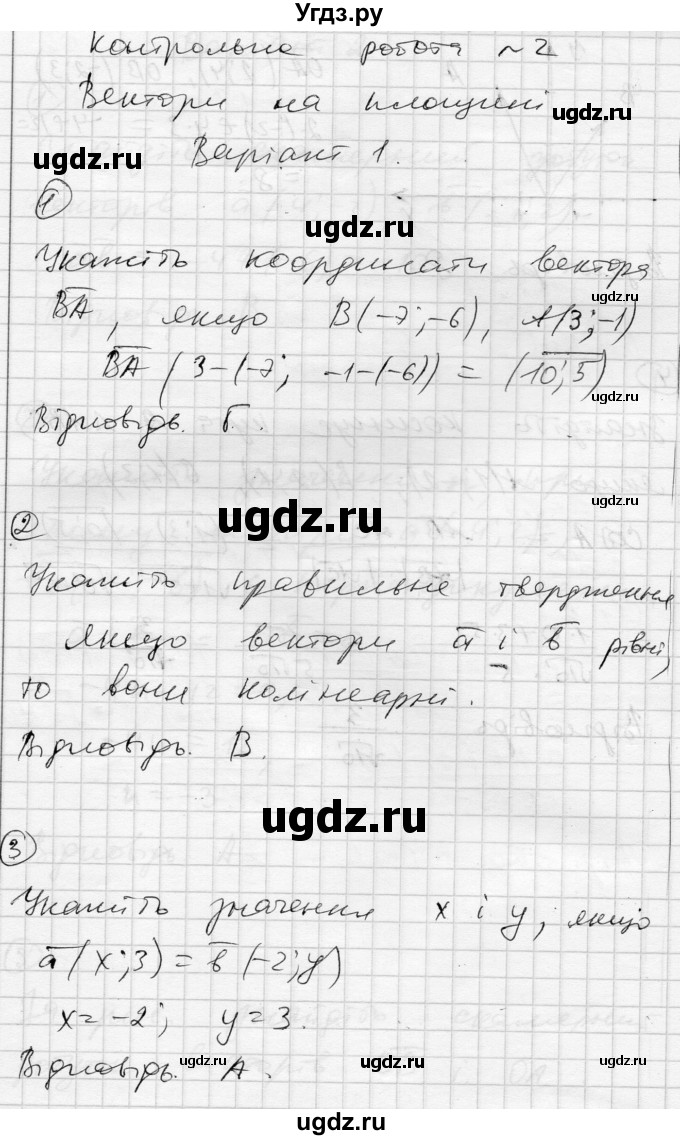 Угдз.ру
Контрольна робота ~2
Вектори на площині
ugdz.ru
ugdz.ru
Варіант 1.
1
ugdz.ru
Укажіть координати вектора
BA, якщо B(-7; -6), A(3; -1)
ugdz.ru
BA (3-(-7; -1-(-6)) = (10; 5)
ugdz.ru
Відповідь. Б.
ugdz.ru
2
Укажіть правильне твердження
ugdz.ru
Якщо вектори a і b рівні,
то вони колінеарні.
Відповідь. В.
ugdz.ru
ugdz.ru
3
Укажіть значення x і y, якщо
ugdz.ru
a(x; 3) = b(-2; y)
x = -2; y = 3.
ugdz.ru
ugdz.ru
ugdz.ru
Відповідь. А.
ugdz.ru